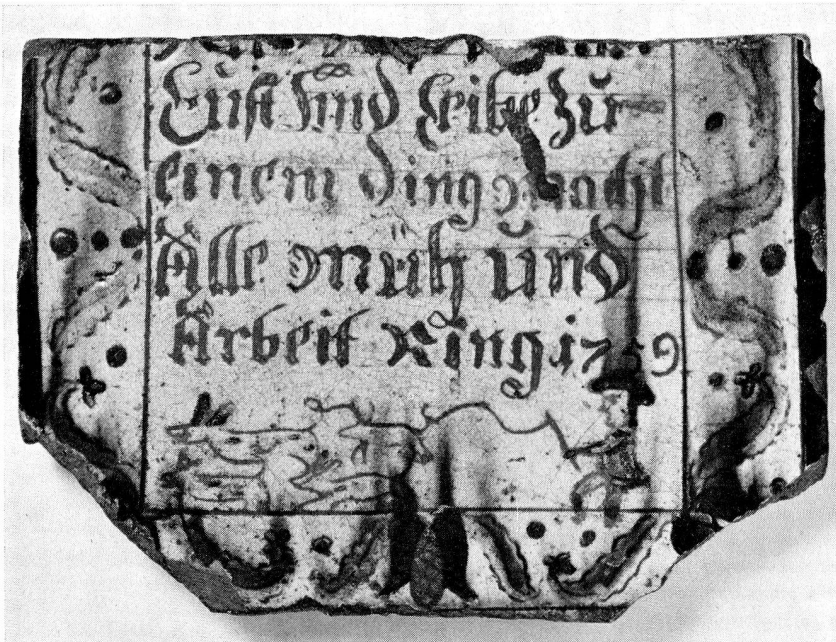 Lust und Leibe zu
einem ding macht
Alle Müh und
Arbeit Ring 1759